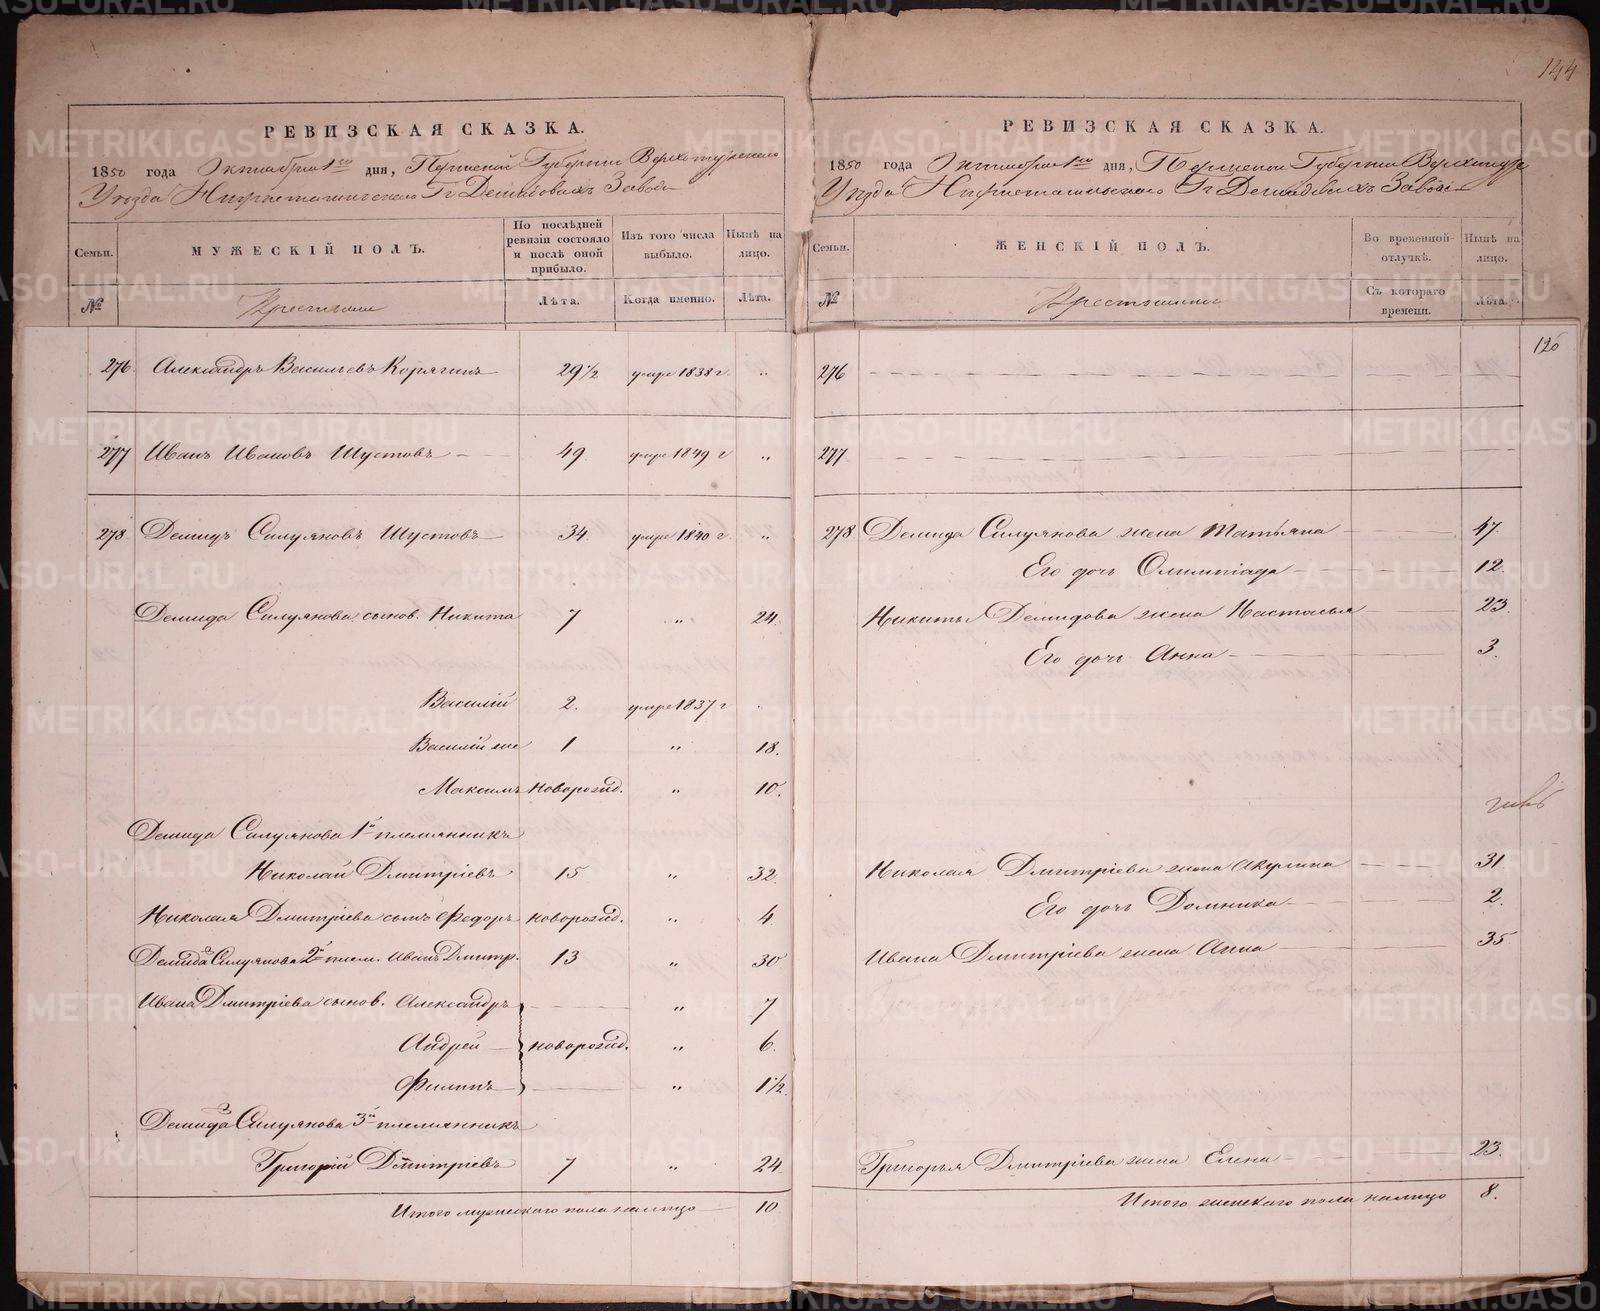 144
РЕВИЗСКАЯ СКАЗКА.
1850 года Октября 1го дня, Пермской Губернии Верхотурскаго
Уезда Нижнетагильскаго Гг Демидовыхъ Завода
Семьи. МУЖЕСКІЙ ПОЛЪ. По послѣдней ревизіи состояло и послѣ оной прибыло. Изъ того числа выбыло. Нынѣ на лицо.
№ Крестьяне Лѣта. Когда именно. Лѣта.
276 Александръ Васильевъ Корягинъ 29 1/2 умре 1838 г „
277 Иванъ Ивановъ Шустовъ 49 умре 1849 г „
278 Демидъ Силуяновъ Шустовъ 34. умре 1840 г „
Демида Силуянова сынов. Никита 7 „ 24.
Василій 2. умре 1837 г
Василій же 1 „ 18.
Максимъ новорожд. „ 10.
Демида Силуянова 1й племянникъ
Николай Дмитріевъ 15 „ 32.
Николая Дмитріева сынъ Федоръ новорожд. „ 4
Демида Силуянова 2й плем. Иванъ Дмитр. 13 „ 30
Ивана Дмитріева сынов. Александръ „ 7
Андрей новорожд. „ 6.
Филипъ „ 1 1/2
Демида Силуянова 3й племянникъ
Григорій Дмитріевъ 7 „ 24.
Итого мужескаго пола налицо 10
РЕВИЗСКАЯ СКАЗКА.
1850 года Октября 1го дня, Пермской Губернии Верхотурс
Уезда Нижнетагильскаго Гг Демидовыхъ Завода
Семьи. ЖЕНСКІЙ ПОЛЪ. Во временной отлучкѣ. Нынѣ на лицо.
№ Крестьянки Съ котораго времени. Лѣта.
126
276
277
278 Демида Силуянова жена Татьяна 47
Его дочь Олимпіада 12.
Никиты Демидова жена Настасья 23.
Его дочь Анна 3.
Николая Дмитріева жена Акулина 31
Его дочь Домника 2.
Ивана Дмитріева жена Анна 35
Григорья Дмитріева жена Елена 23.
Итого женскаго пола налицо 8.
METRIKI.GASO-URAL.RU